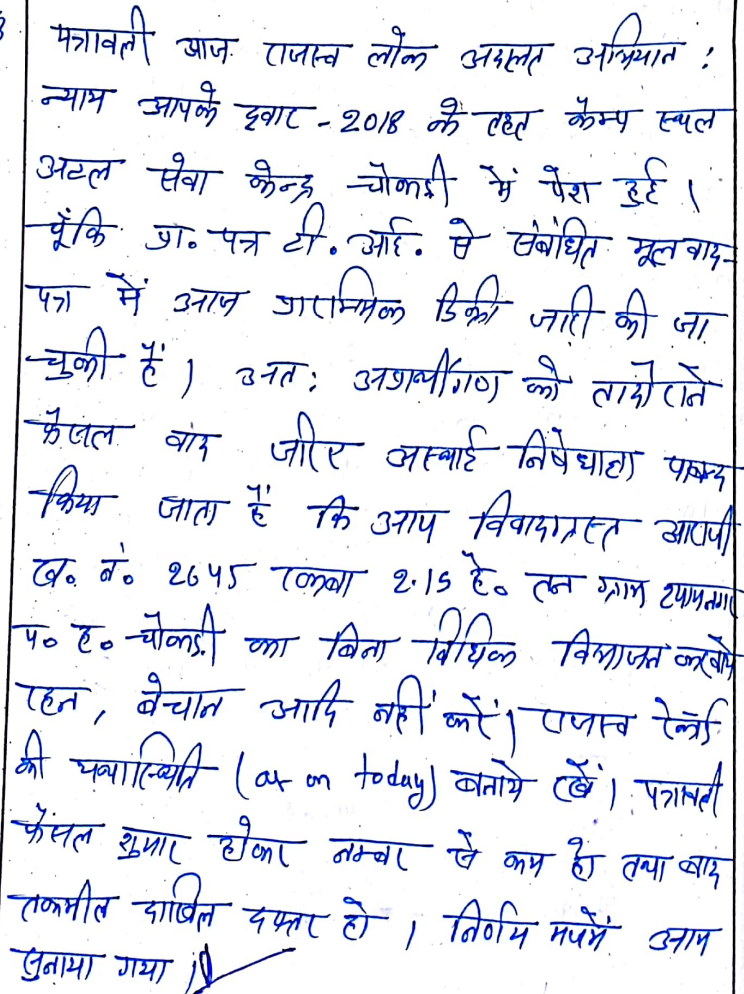 पत्रावली आज राजस्व लोक अदालत अभियान :
न्याय आपके द्वार - 2018 के तहत कैम्प स्थल
अटल सेवा केन्द्र चौकडी में पेश हुई ।
चूँकि प्रा० पत्र टी. आई. से संबंधित मूल वाद-
पत्र में आज प्रारम्भिक डिक्री जारी की जा
चुकी है । अत: अप्रार्थीगण को ताफैसले
वाद जरिए अस्थाई निषेधाज्ञा पाबन्द
किया जाता है कि आप विवादग्रस्त आराजी
ख० नं० 2645 रकबा 2.15 है० तन ग्राम
प० ह० चौकडी का बिना विधिक विभाजन करवाये
रहन, बेचान आदि नहीं करें । राजस्व रेकर्ड
की यथास्थिति (as on today) बनाये रखें । पत्रावली
फैसल शुमार होकर नम्बर से कम हो तथा बाद
तकमील दाखिल दफ्तर हो । निर्णय आम
सुनाया गया ।